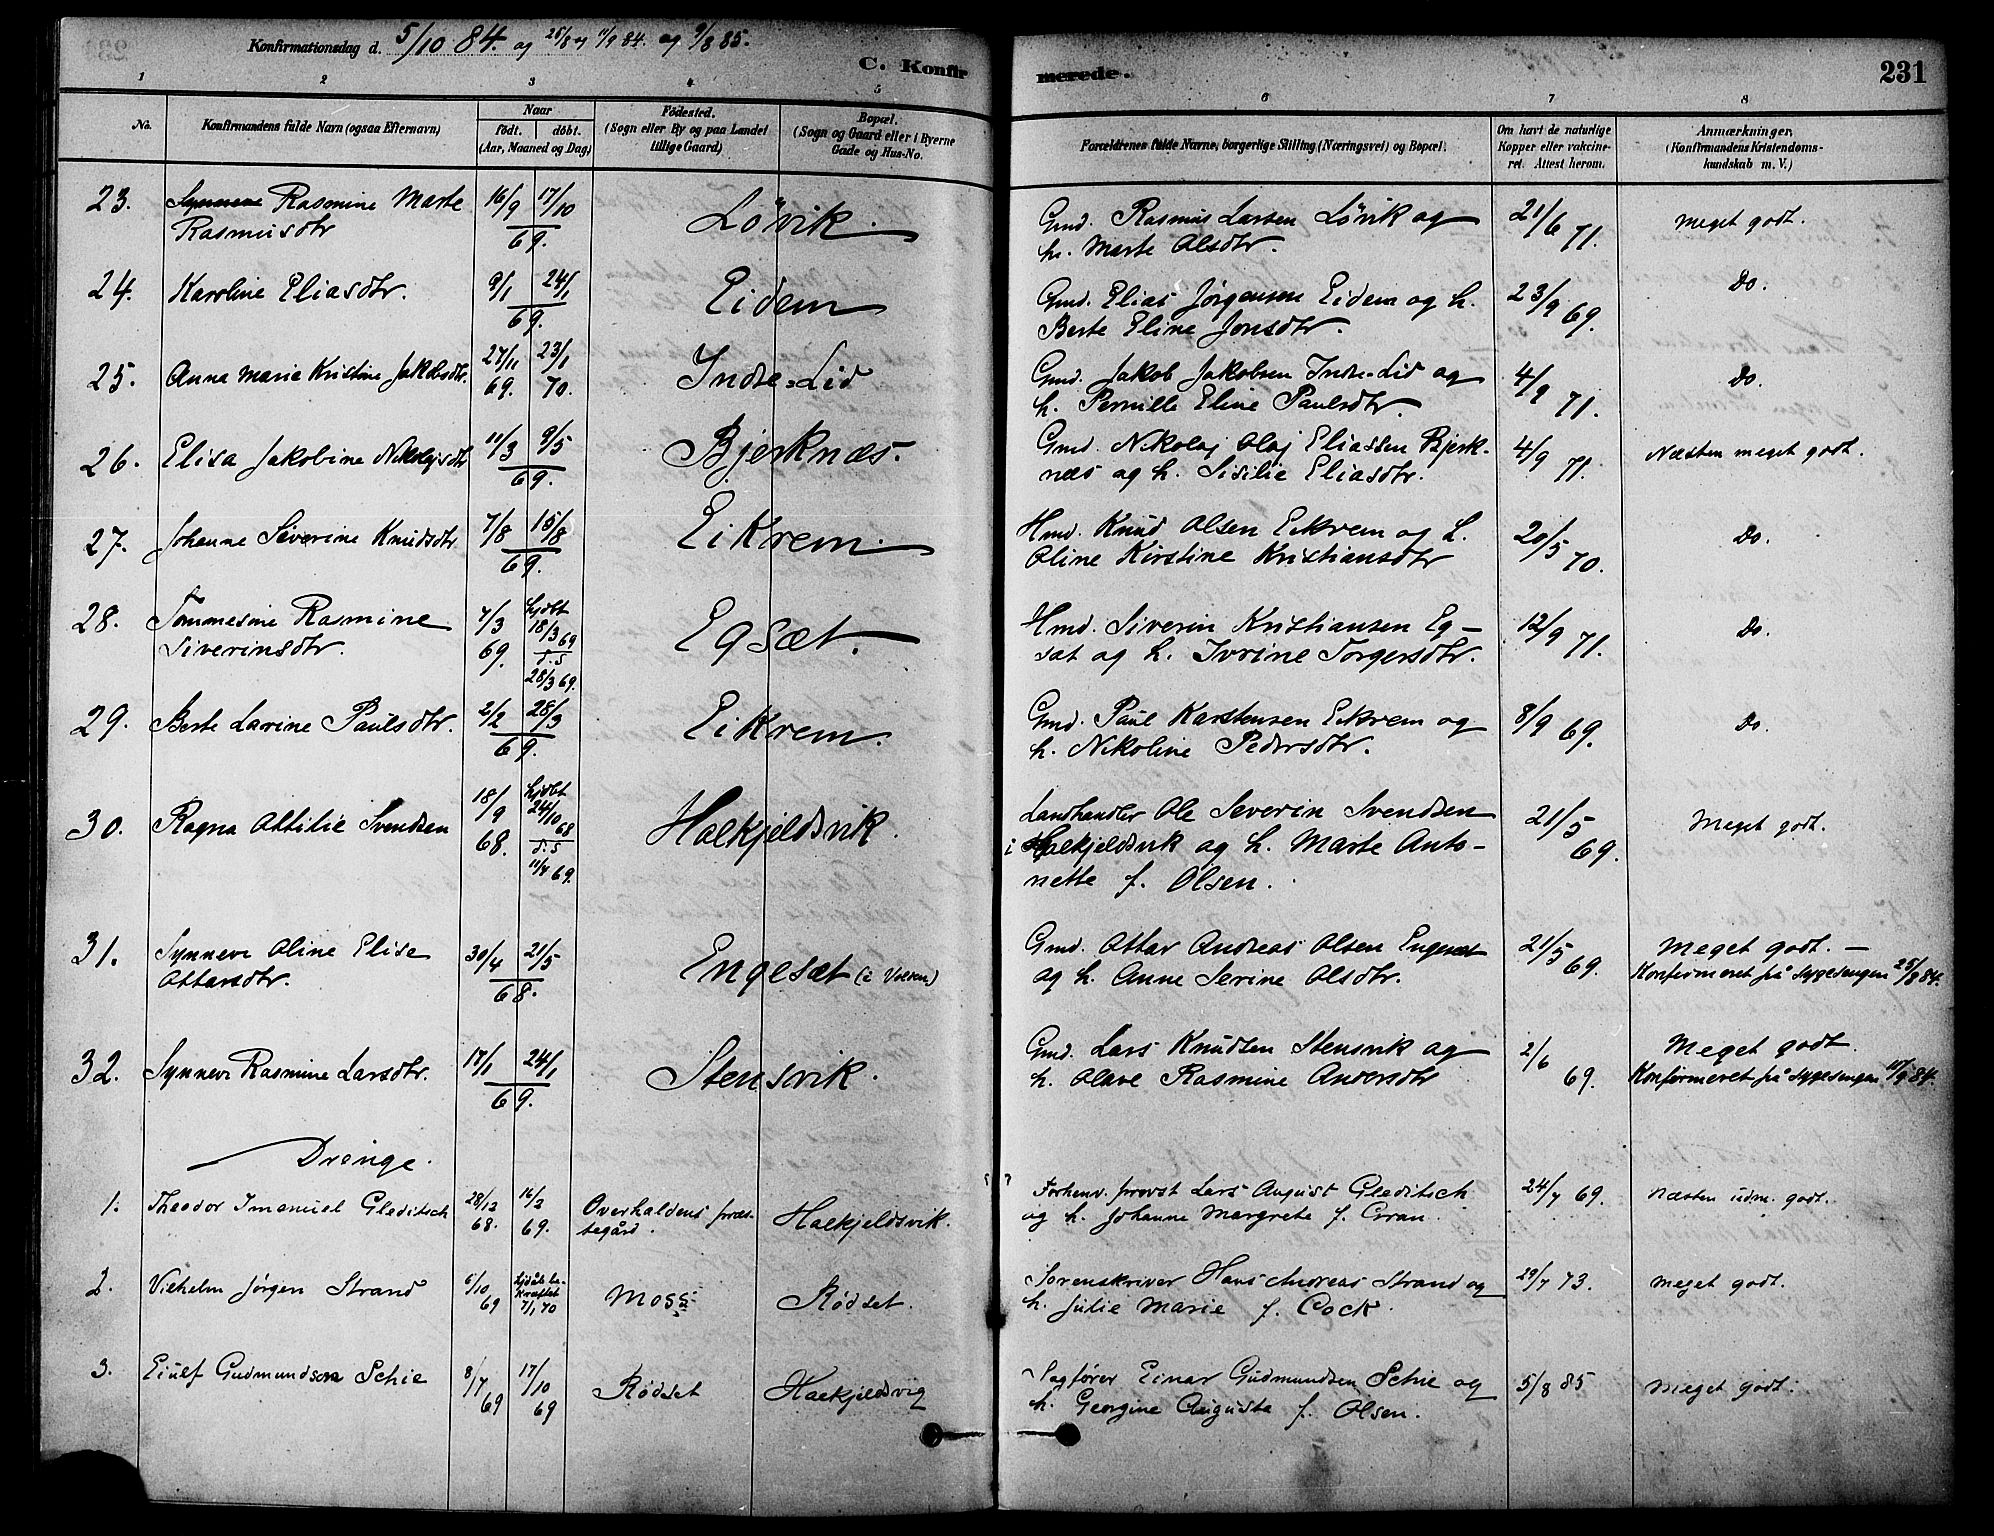 Konfirmationsdag d. 5/10 84. og 25/8 og 11/9 84. og 9/8 85.
C. Konfirmerede.
231
1 2 3 4 5 6 7 8
No.
Konfirmandens fulde Navn (ogsaa Efternavn)
Naar
födt. döbt.
(Aar, Maaned og Dag)
Födested.
(Sogn eller By og paa Landet
tillige Gaard)
Bopæl.
(Sogn og Gaard eller i Byerne
Gade og Hus-No.
Forældrenes fulde Navne, borgerlige Stilling (Næringsvei) og Bopæl.
Om havt de naturlige
Kopper eller vakcine-
ret. Attest herom.
Anmærkninger.
(Konfirmandens Kristendoms-
kundskab m. V.)
23. Synneve Rasmine Marte
Rasmusdtr
16/9 17/10
69.
Lövik.
Gmd. Rasmus Larsen Lövik og
h. Marte Olsdtr.
21/6 71.
Meget godt.
24. Karoline Eliasdtr.
9/1 24/1
69.
Eidem
Gmd. Elias Jørgensen Eidem og h.
Berte Eline Jonsdtr.
23/9 69.
Do.
25. Anna Marie Kristine Jakobsdtr.
27/11 23/1
69. 70.
Indre-Lid
Gmd. Jakob Jakobsen Indre-Lid og
h. Pernille Eline Paulsdtr.
4/9 71.
Do.
26. Elisa Jakobine Nikolajsdtr
11/3 9/5
69.
Bjerknæs.
Gmd. Nikolaj Olaj Eliassen Bjerk-
næs og h. Sisilie Eliasdtr.
4/9 71.
Næsten meget godt.
27. Johanne Severine Knudsdtr
7/8 15/8
69.
Eikrem.
Hmd. Knud Olsen Eikrem og h.
Oline Kirstine Kristiansdtr
20/5 70.
Do.
28. Tommesine Rasmine
Siverinsdtr.
7/3 hjdbt
18/3 69
69. d. s
28/3 69.
Egsæt.
Hmd. Siverin Kristiansen Eg-
sæt og h. Ivrine Torgersdtr.
12/9 71.
Do.
29. Berte Lavine Paulsdtr.
2/2 28/3
69.
Eikrem.
Gmd. Paul Karstensen Eikrem og
h. Nikoline Pedersdtr.
8/9 69.
Do.
30. Ragna Ottilie Svendsen
18/9 hjdbt
24/10 68
68. d. s
11/4 69.
Halkjeldsvik.
Landhandler Ole Severin Svendsen
i Halkjeldsvik og h. Marte Anto-
nette f. Olsen.
21/5 69.
Meget godt.
31. Synneve Oline Elise
Ottarsdtr.
30/4 21/5
68.
Engesæt (i Volden)
Gmd. Ottar Andreas Olsen Engesæt
og h. Anne Serine Olsdtr.
21/5 69.
Meget godt. -
Konfirmeret på sygesengen 25/8 84.
32. Synneve Rasmine Larsdtr.
17/1 24/1
69.
Stensvik.
Gmd. Lars Knudsen Stensvik og
h. Olave Rasmine Andersdtr
2/6 69.
Meget godt.
Konfirmeret på sygesengen 11/9 84.
Drenge.
1. Theodor Imanuel Gleditsch
28/12 16/2
68. 69.
Overhaldens præs-
tegård.
Halkjeldsvik.
Forhenv. provst Lars August Gleditsch
og h. Johanne Margrete f. Gran.
24/7 69.
Næsten udm. godt.
2. Vilhelm Jørgen Strand
6/10 69 hjdåb be-
kræftet
7/1 70
Moss
Rødset.
Sorenskriver Hans Andreas Strand og
h. Julie Marie f. Cock.
29/7 73.
Meget godt.
3. Eiulf Gudmundson Schie
8/7 69 17/10 69
Rødset
Halkjeldsvig
Sagfører Einar Gudmundsen Schie og
h. Georgine Augusta f. Olsen.
5/8 85
Meget godt.